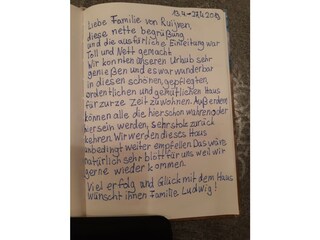 13.4 - 27.4.2019
Liebe Familie von Ruijven,
diese nette begrüßung
und die ausfürliche Einleitung war
Toll und Nett gemacht
Wir konnten unseren Urlaub sehr
genießen und es war wunderbar
in diesen schönen, gepflegten,
ordentlichen und gemütlichen Haus
für zurze Zeit zu wohnen. Außerdem
können alle die hier schon waren oder
hier sein werden, sehr stolz zurück
kehren. Wir werden dieses Haus
unbedingt weiter empfellen. Das wäre
natürlich sehr blött für uns weil wir
gerne wieder kommen.
Viel erfolg und Glück mit dem Haus
wünscht ihnen Familie Ludwig!